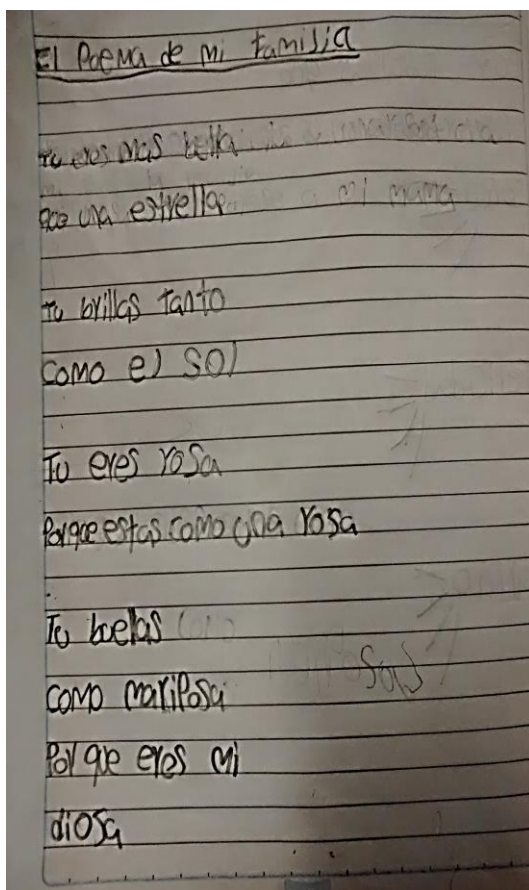 El Poema de mi familia
tu eres mas bella
que una estrella
mi mama
tu brillas tanto
como el sol
Tu eres rosa
Porque estas como una rosa
Tu buelas
como mariposa
Por que eres mi
diosa